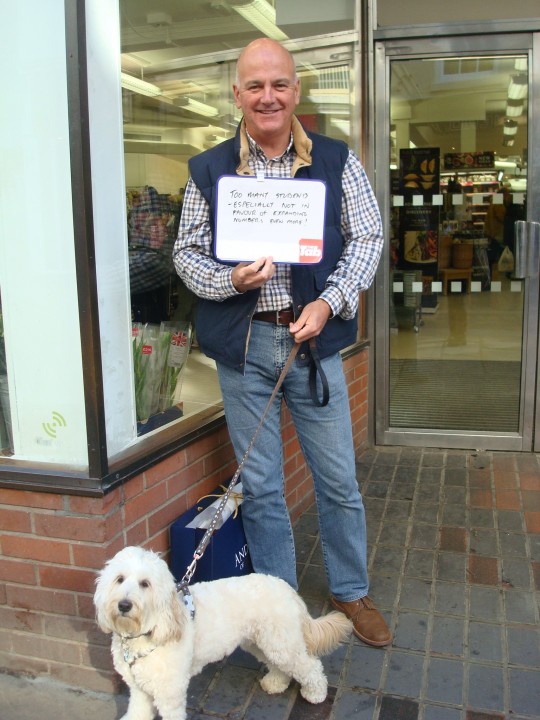 TOO MANY STUDENTS
- ESPECIALLY NOT IN
FAVOUR OF EXPANDING
NUMBERS EVEN MORE!
Tab
AND